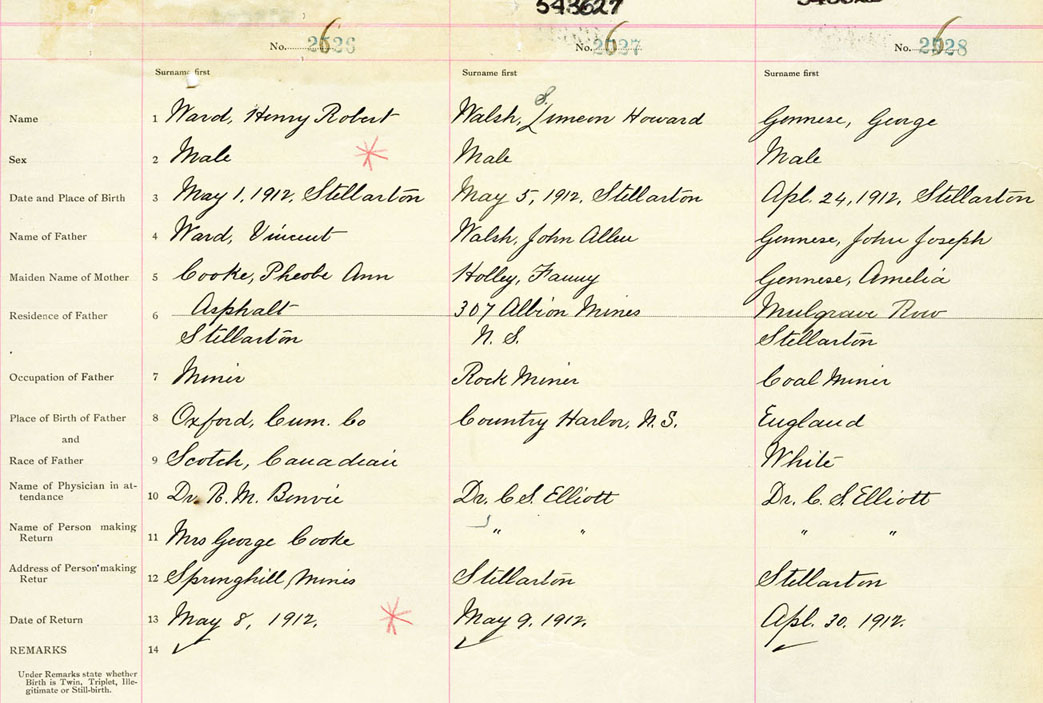 543627
No. 2626 No. 2627 No. 2628
Surname first Surname first Surname first
Name 1 Ward, Henry Robert Walsh, Simeon Howard Gennese, George
Sex 2 Male Male Male
Date and Place of Birth 3 May 1, 1912, Stellarton May 5, 1912, Stellarton Apl. 24, 1912, Stellarton
Name of Father 4 Ward, Vincent Walsh, John Allen Gennese, John Joseph
Maiden Name of Mother 5 Cooke, Pheobe Ann Holley, Fanny Gennese, Amelia
Residence of Father 6 Asphalt 307 Albion Mines Mulgrave Row
Stellarton N. S. Stellarton
Occupation of Father 7 Miner Rock Miner Coal Miner
Place of Birth of Father 8 Oxford, Cum. Co Country Harbor, N.S. England
and
Race of Father 9 Scotch, Canadian White
Name of Physician in at-
tendance 10 Dr. R. M. Benvie Dr. C S. Elliott Dr. C. S. Elliott
Name of Person making
Return 11 Mrs George Cooke " " " "
Address of Person making
Retur 12 Springhill Mines Stellarton Stellarton
Date of Return 13 May 8, 1912. May 9, 1912. Apl. 30, 1912.
REMARKS 14
Under Remarks state whether
Birth is Twin, Triplet, Ille-
gitimate or Still-birth.